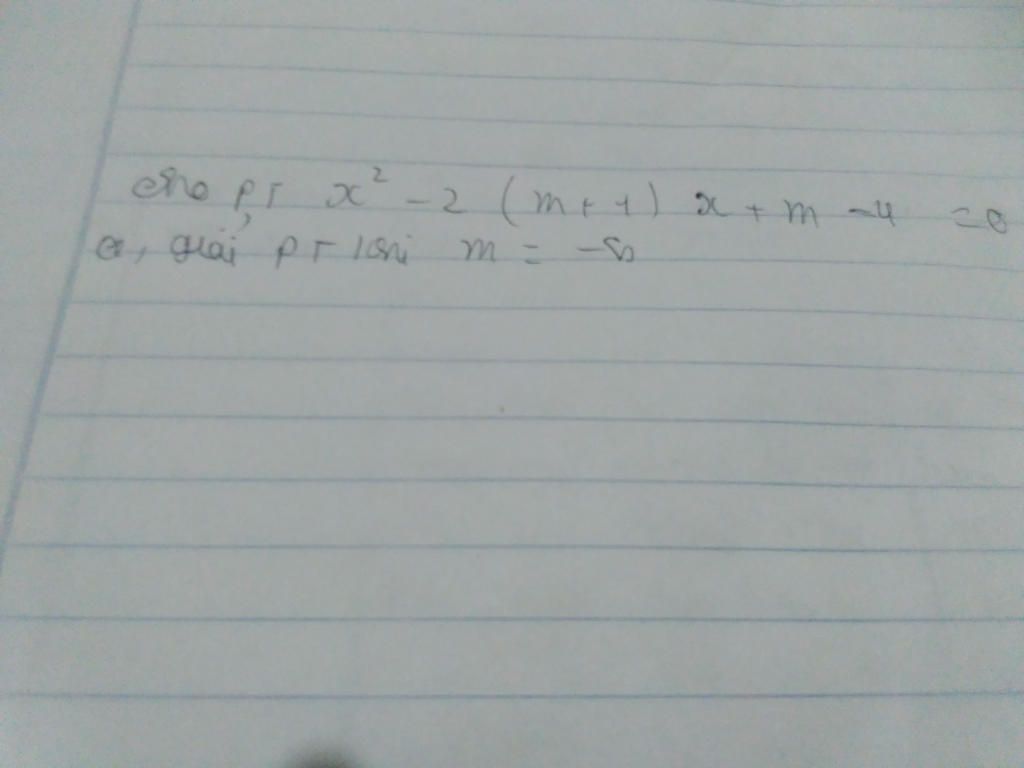 cho pT x² - 2 (m + 1) x + m - 4 = 0
a, giải pT khi m = -5